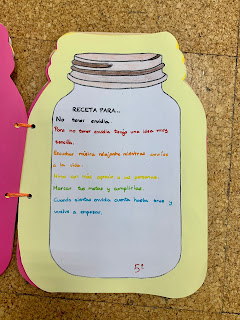 RECETA PARA...
No tener envidia
Para no tener envidia tengo una idea muy
sencilla.
Escuchar música relajante mientras sonríes
a la vida.
Mirar con más aprecio a las personas.
Marcar tus metas y cumplirlas.
Cuando sientas envidia cuenta hasta tres y
vuelve a empezar.
5º